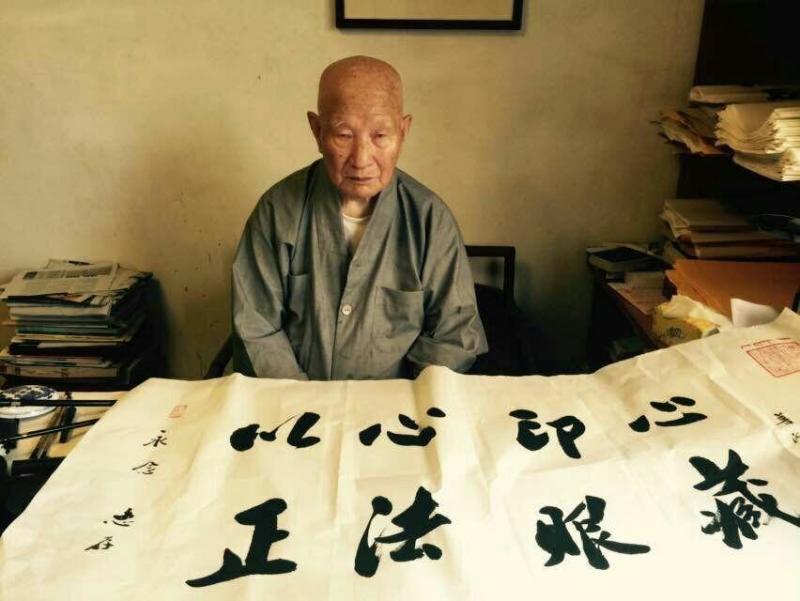 以心印心
正法眼藏
永念 志存